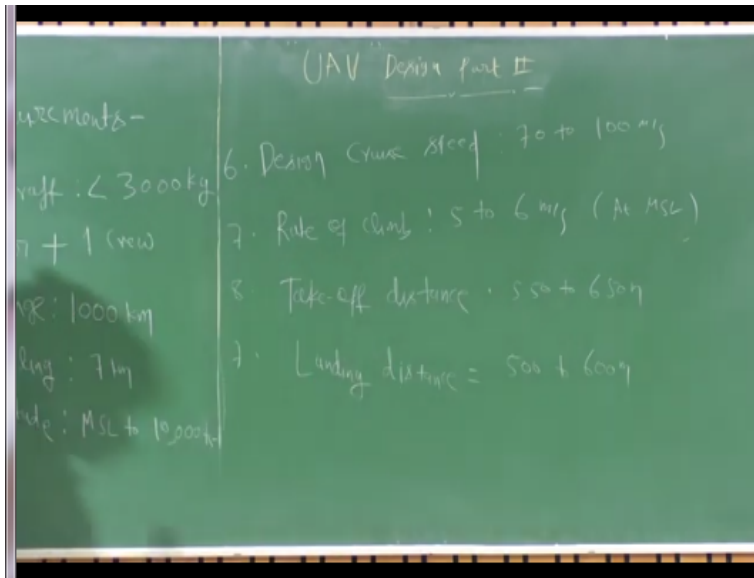 UAV Design Part II
urements-
raft : < 3000 kg
+ 1 Crew
ge : 1000 km
ling : 7 km
tude : MSL to 10,000
6. Design Cruise speed : 70 to 100 m/s
7. Rate of climb : 5 to 6 m/s (At MSL)
8. Take-off distance . 550 to 650m
7. Landing distance = 500 to 600m